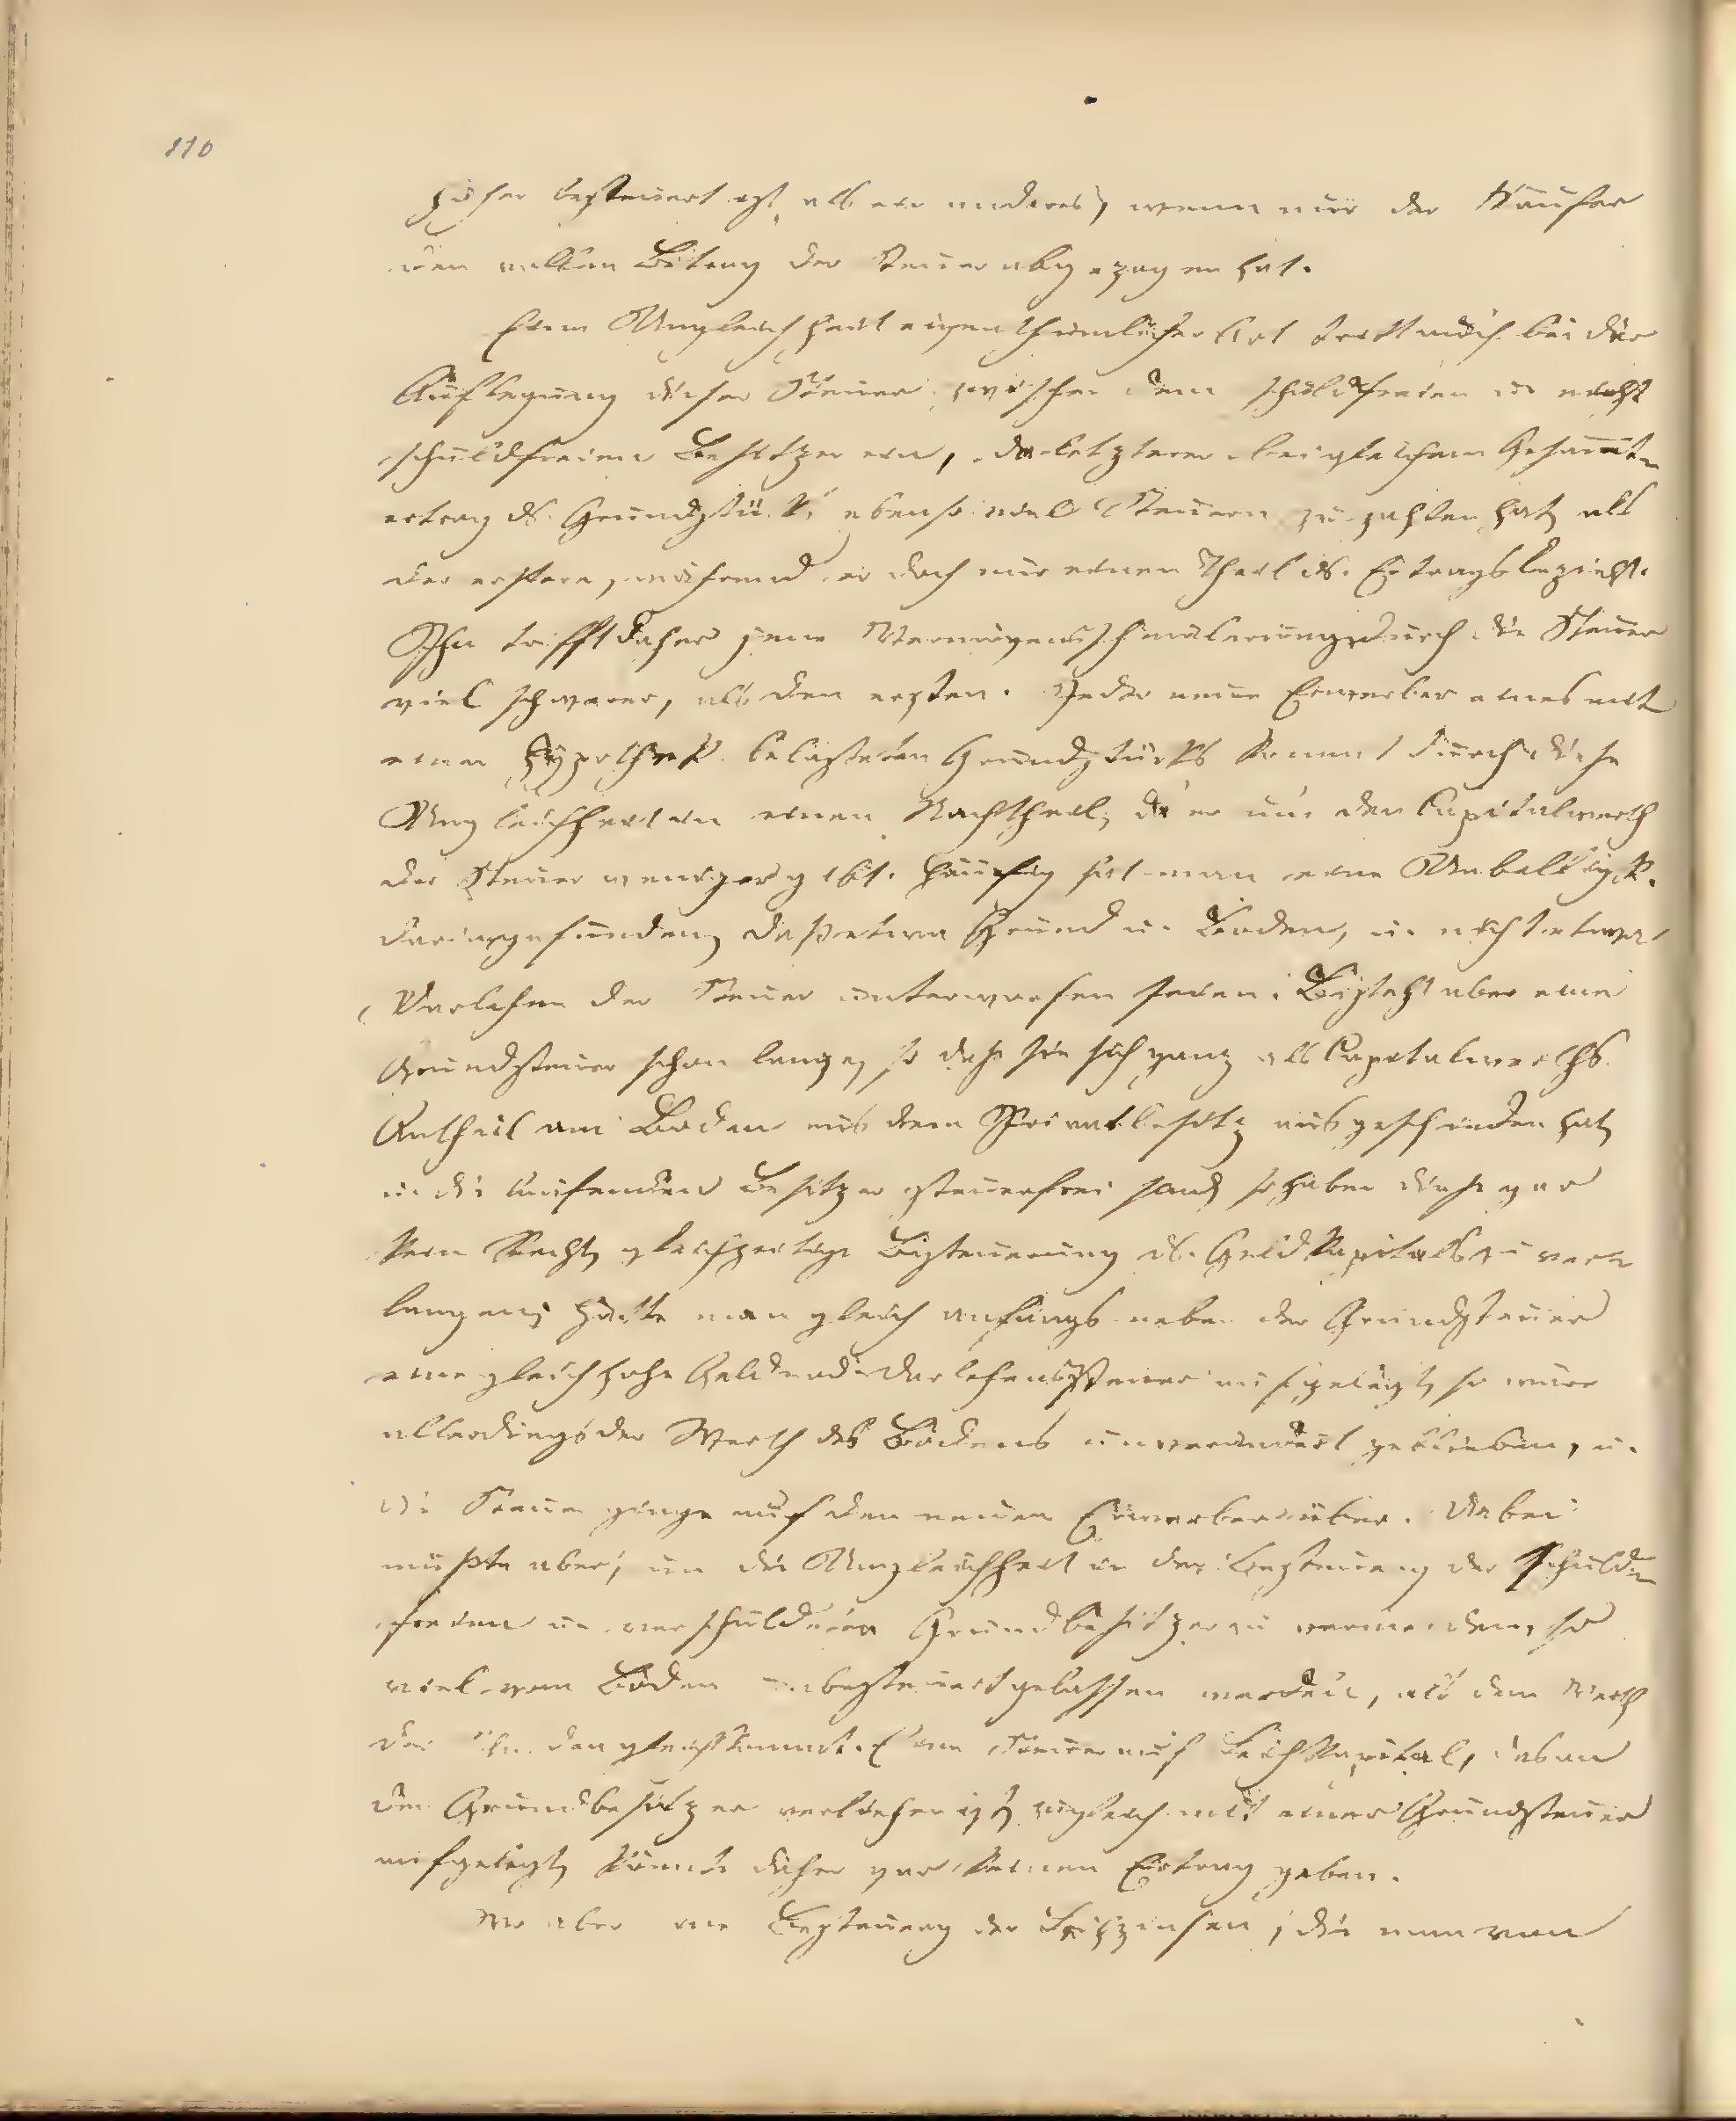 110
höher besteuert ist, als ein anderes, wenn nur der Käufer
den vollen Betrag der Steuer abgezogen hat.
Eine Ungleichheit eigenthümlicher Art tritt auch bei der
Auflegung dieser Steuer zwischen dem schuldfreien u. nicht
schuldfreien Besitzer ein, da letzterer bei gleichem Gesammt-
ertrag ds. Grundstücks ebenso viel Steuern zu zahlen hat, als
der erstere, während er doch nur einen Theil ds. Ertrags bezieht.
Ihn trifft daher jene Vermögensschmälerung durch die Steuer
viel schwerer, als den ersten. Jeder neue Erwerber eines mit
einer Hypothek belasteten Grundstücks kommt durch diese
Ungleichheit in einen Nachtheil, da er nur den Capitalwerth
der Steuer weniger gibt. Häufig hat man eine Unbilligk.
darin gefunden, daß etwa Grund u. Boden, u. nicht etwa
Darlehen der Steuer unterworfen seien. Besteht aber eine
Grundsteuer schon lange, so daß sie sich ganz als Capitalwerths
Antheil am Boden aus dem Privatbesitz ausgeschieden hat,
u. die laufenden Besitzer steuerfrei sind, so haben diese gar
kein Recht, gleichzeitige Besteuerung ds. Geldkapitals zu ver-
langen; hätte man gleich anfangs neben der Grundsteuer
eine gleich hohe Geld- und Darlehenssteuer aufgelegt, so wäre
allerdings der Werth des Bodens unverändert geblieben, u.
die Steuer ginge auf den neuen Erwerber über. Dabei
müßte aber, um die Ungleichheit in der Besteuerung der schulden-
freien u. verschuldeten Grundbesitzer zu vermeiden, so
viel vom Boden unbesteuert gelassen werden, als dem Werth
der Schulden gleichkommt. Eine Steuer auf Leihkapital, das an
den Grundbesitzer verliehen ist, zugleich mit einer Grundsteuer
aufgelegt, könnte daher gar keinen Ertrag geben.
Wo aber eine Besteuerung der Leihzinsen, die man von